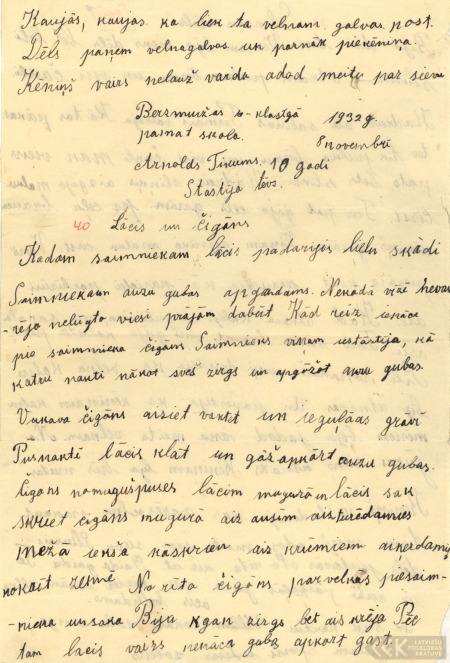 Kaujās, kaujas ka liek ta velnam galvas post.
Dēls paņem velnagalvas un parnāk pieķēniņa.
Ķēniņš vairs nelauž vārda adod meitu par sievu
Berzmuižas 6-klasīgā 1932g.
pamat skola. 8 novembrī
Arnolds Tikums. 10 gadi
Stastīja tēvs.
40 Lācis un čigāns
Kādam saimniekam lācis padarijis lielu skādi
Saimniekam auzu gubas apgāzdams. Nekādā vīzē nevar
-rēja nelūgto viesi prajām dabūt Kād reiz ienāca
pio saimnieka čigāns. Saimnieks viņam iestāstīja, kā
katru nakti nākot svešs zirgs un apgāžot auzu gubas.
Vakava čigāns aiziet vaktēt un iegulāas grāvī
Pusnaktī lācis klāt un gāž apkārt auzu gubas.
Čigans nomuguŗpuses lācim mugurā un lācis sak
skriet čigāns mugurā aiz ausīm aisturēdamies
mežā iekšā kāskrien ais krūmiem aiķerdamies
nokait zemē No rīta čigāns parvelkās piesaim-
nieka un saka Bija kgan zirgs bet ais nēja Pēc
tam lacis vairs nenāca gubas apkart gāst.
LATVIEŠU FOLKLORAS KRĀTUVE